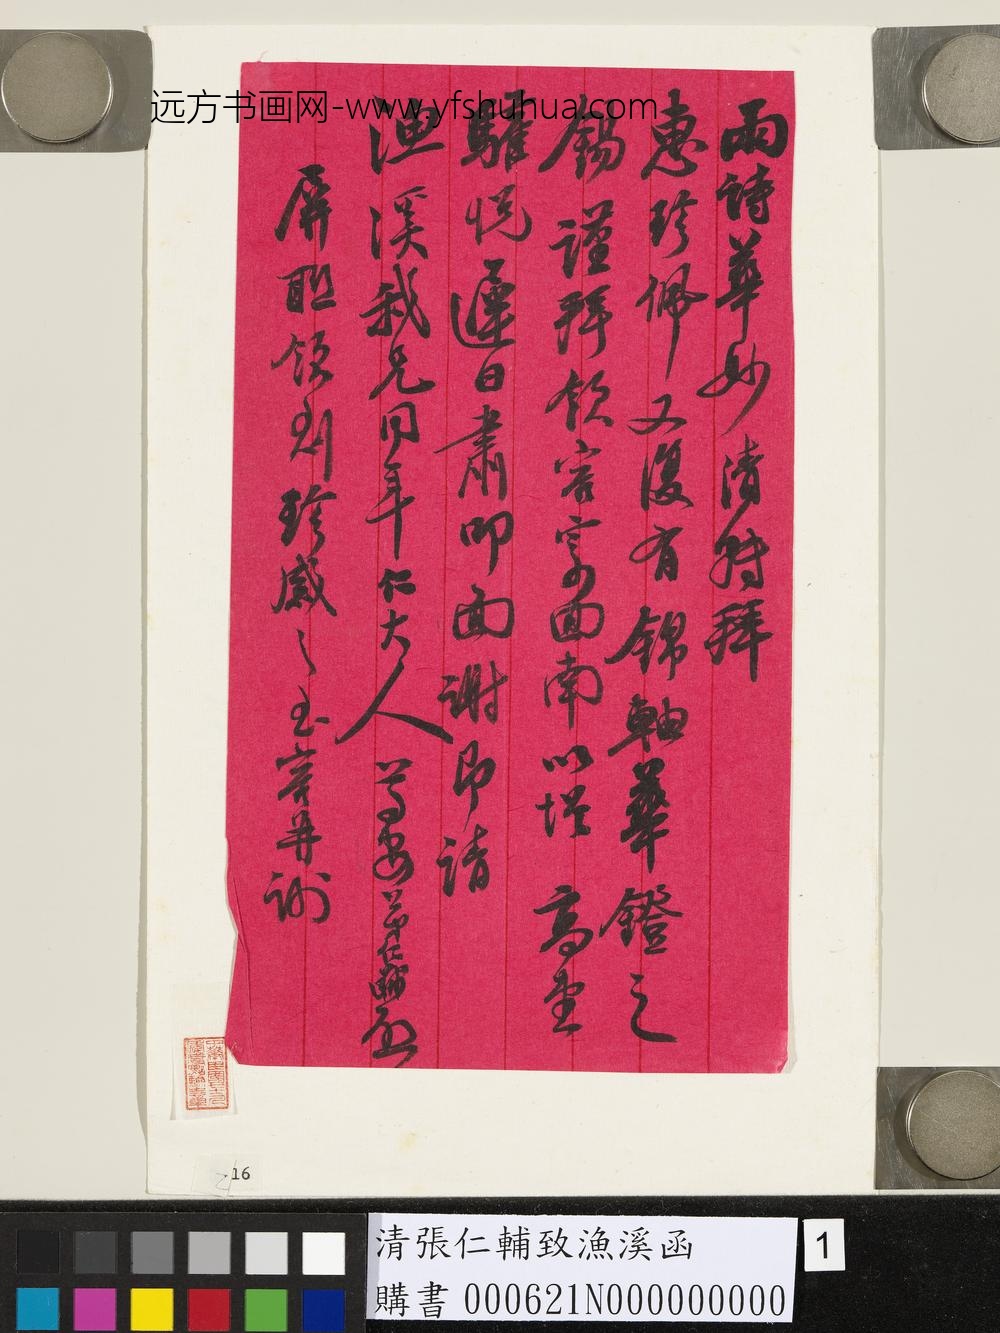 远方书画网-www.yfshuhua.com
兩詩華妙清特拜
惠珍佩又復有錦軸華鐙之
錫謹拜領密字西南以增高堂
驩悅遲日肅叩面謝即請
漁溪我兄同年仁大人尊安弟仁黼頓
屏聯領到珍感之至容再謝
16
清張仁輔致漁溪函
購書000621N000000000
1